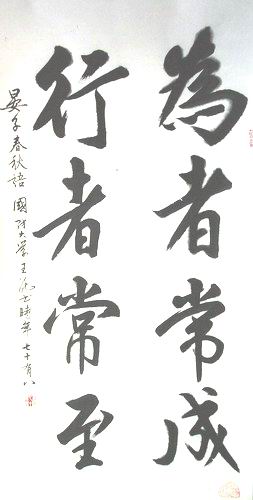 為者常成
行者常至
晏子春秋語 國防大学王 書時年七十有八